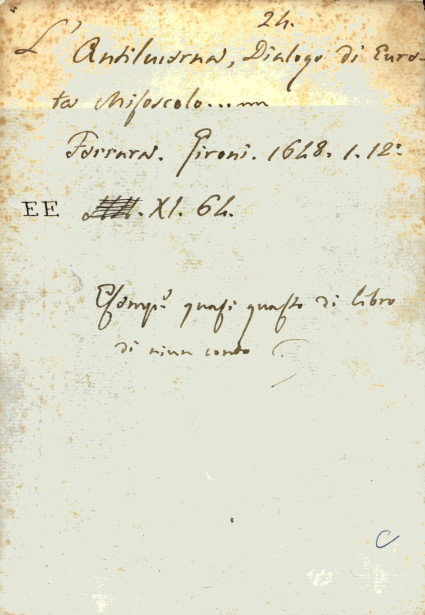 24.
L'Antiluerna, Dialogo di Euro-
ta Misoscolo...
Ferrara. Gironi. 1648. 1. 12°
EE XI. 64.
Esemp.e quasi guasto di libro
di niun conto
C